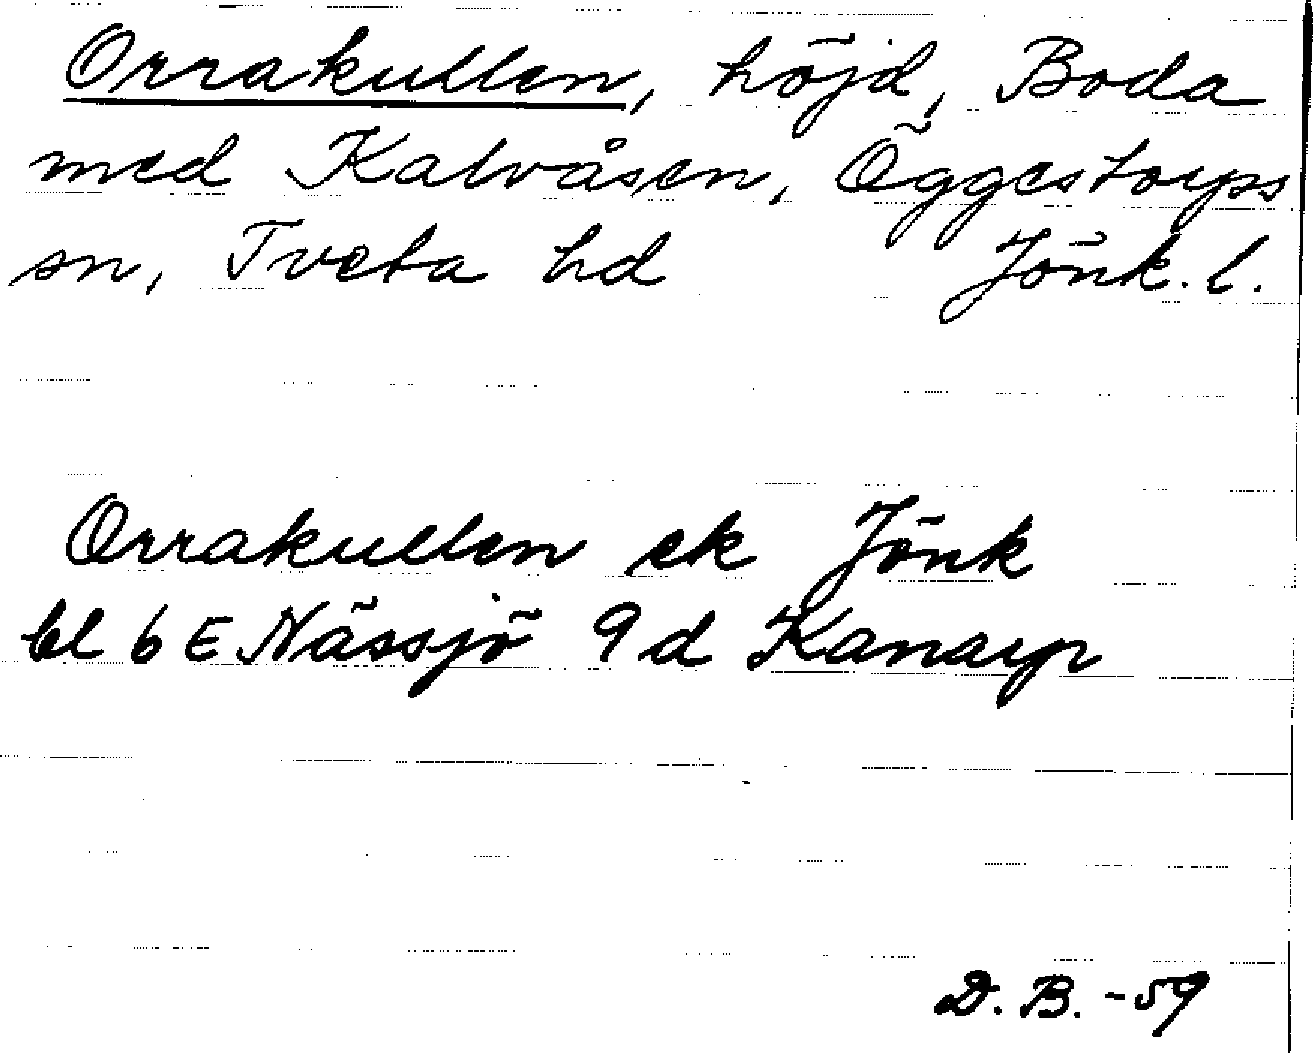 Orrakullen, höjd, Boda
med Kalvåsen, Öggestorps
sn, Tveta hd Jönk. l.
Orrakullen ek Jönk
bl 6 E Nässjö 9 d Kanarp
D. B. -59